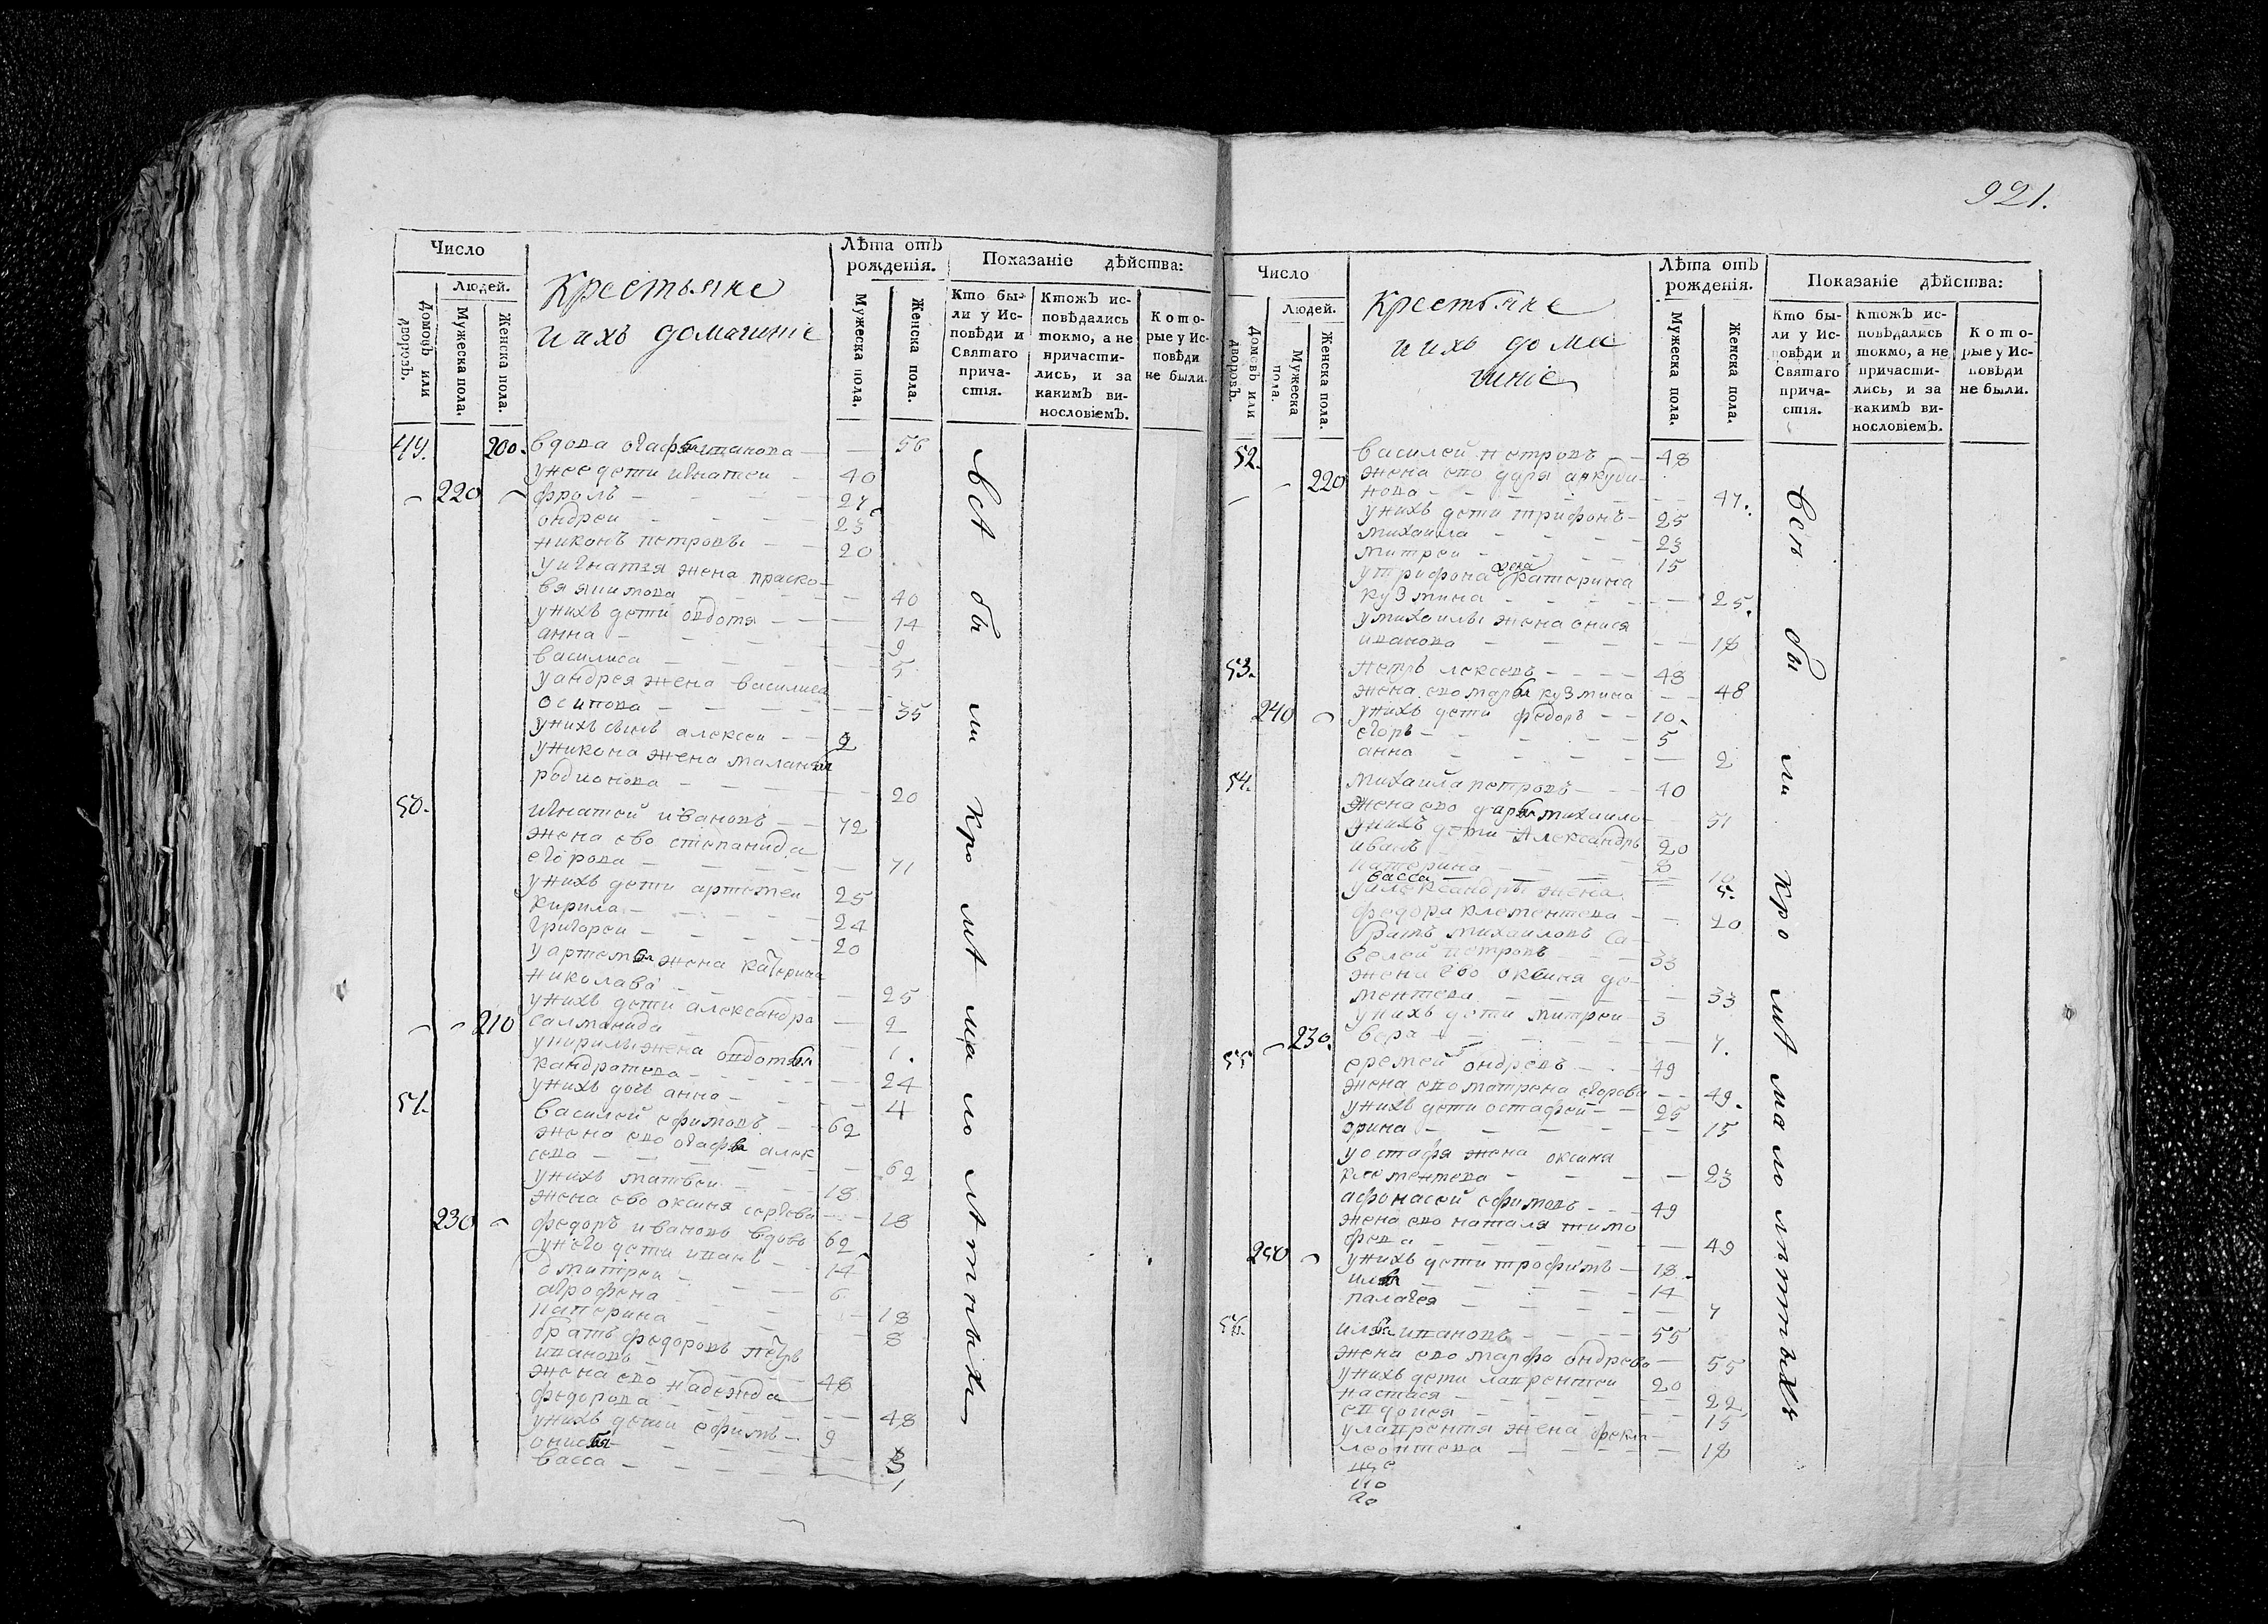 921.
Число
Людей.
Домовъ или дворовъ.
Мужеска пола.
Женска пола.
Крестьяне
и ихъ домашніе
Лѣта отъ рожденія.
Мужеска пола.
Женска пола.
Показаніе дѣйства:
Кто бы-
ли у Ис-
повѣди и
Святаго
прича-
стія.
Ктожъ ис-
повѣдались
токмо, а не
причасти-
лись, и за
какимъ ви-
нословіемъ.
Кото-
рые у Ис-
повѣди
не были.
49. 200. вдова огафья иванова — 56
у нее дети игнатеи — 40
220 фролъ — 27
ондреи — 23
никонъ петровы — 20
у игнатя жена праско-
вя — 40
у нихъ дети овдотя — 14
анна — 9
василиса — 5
у андрея жена василиса
осипова — 35
у нихъ сынъ алексеи — 9
у никона жена маланья
родионова — 20
50. игнатей ивановъ — 72
жена ево степанида
егорова — 71
у нихъ дети артемеи 25
кирила — 24
григореи — 20
у артемья жена катерина
николава — 25
у нихъ дети александра — 2
210 салманида — 1.
у кирилы жена овдотья
кандратева — 24
у нихъ дочь анна — 4
51. василей ефимовъ — 62
жена ево огафья алек
сева — 62
у нихъ матвеи — 18
жена ево оксиня сергева — 18
230 федоръ ивановъ вдовъ 62
у него дети иванъ — 14
дмитреи — 6
аграфена — 18
катерина — 8
братъ федоровъ петръ
ивановъ — 48
жена ево надежда
федорова — 48
у нихъ дети ефимъ — 9
онисья — 3
васса — 1
всѣ бы ли кро мѣ ма ло лѣ тныхъ
Число
Людей.
Домовъ или дворовъ.
Мужеска пола.
Женска пола.
Крестьяне
и ихъ дома
шніе
Лѣта отъ рожденія.
Мужеска пола.
Женска пола.
Показаніе дѣйства:
Кто бы-
ли у Ис-
повѣди и
Святаго
прича-
стія.
Ктожъ ис-
повѣдались
токмо, а не
причасти-
лись, и за
какимъ ви-
нословіемъ.
Кото-
рые у Ис-
повѣди
не были.
52. василей петровъ — 48
220 жена ево даря анкуди-
нова — 47.
у нихъ дети трифонъ — 25
михаила — 23
митреи — 15
у трифона жена катерина
кузмина — 25.
у михаилы жена онися
иванова — 18
53. петръ лексевъ — 48
жена ево марья кузмина — 48
240 у нихъ дети федоръ — 10
егоръ — 5
анна — 2
54. михайла петровъ — 40
жена ево дарья михаило — 51
у нихъ дети александръ 20
иванъ — 8
катерина — 10
васса — 5.
у александры жена
федора клементева — 20
братъ михаиловъ са-
велей петровъ — 33
жена ево оксиня де-
ментева — 33
у нихъ дети митреи — 3
230. вера — 7.
55 еремей ондревъ — 49
жена ево матрена егорова — 49.
у нихъ дети остафей — 25
орина — 15
у остафя жена оксиня
клементева — 23
афонасей ефимовъ — 49
жена ево наталя тимо
фева — 49
250 у нихъ дети трофимъ — 18
илья — 14
палагея — 7
56. илья ивановъ — 55
жена ево марфа ондрева — 55
у нихъ дети лаврентеи 20
настася — 22
евдокея — 15
у лаврентя жена фекла
леонтева — 18
всѣ бы ли кро мѣ ма ло лѣ тныхъ